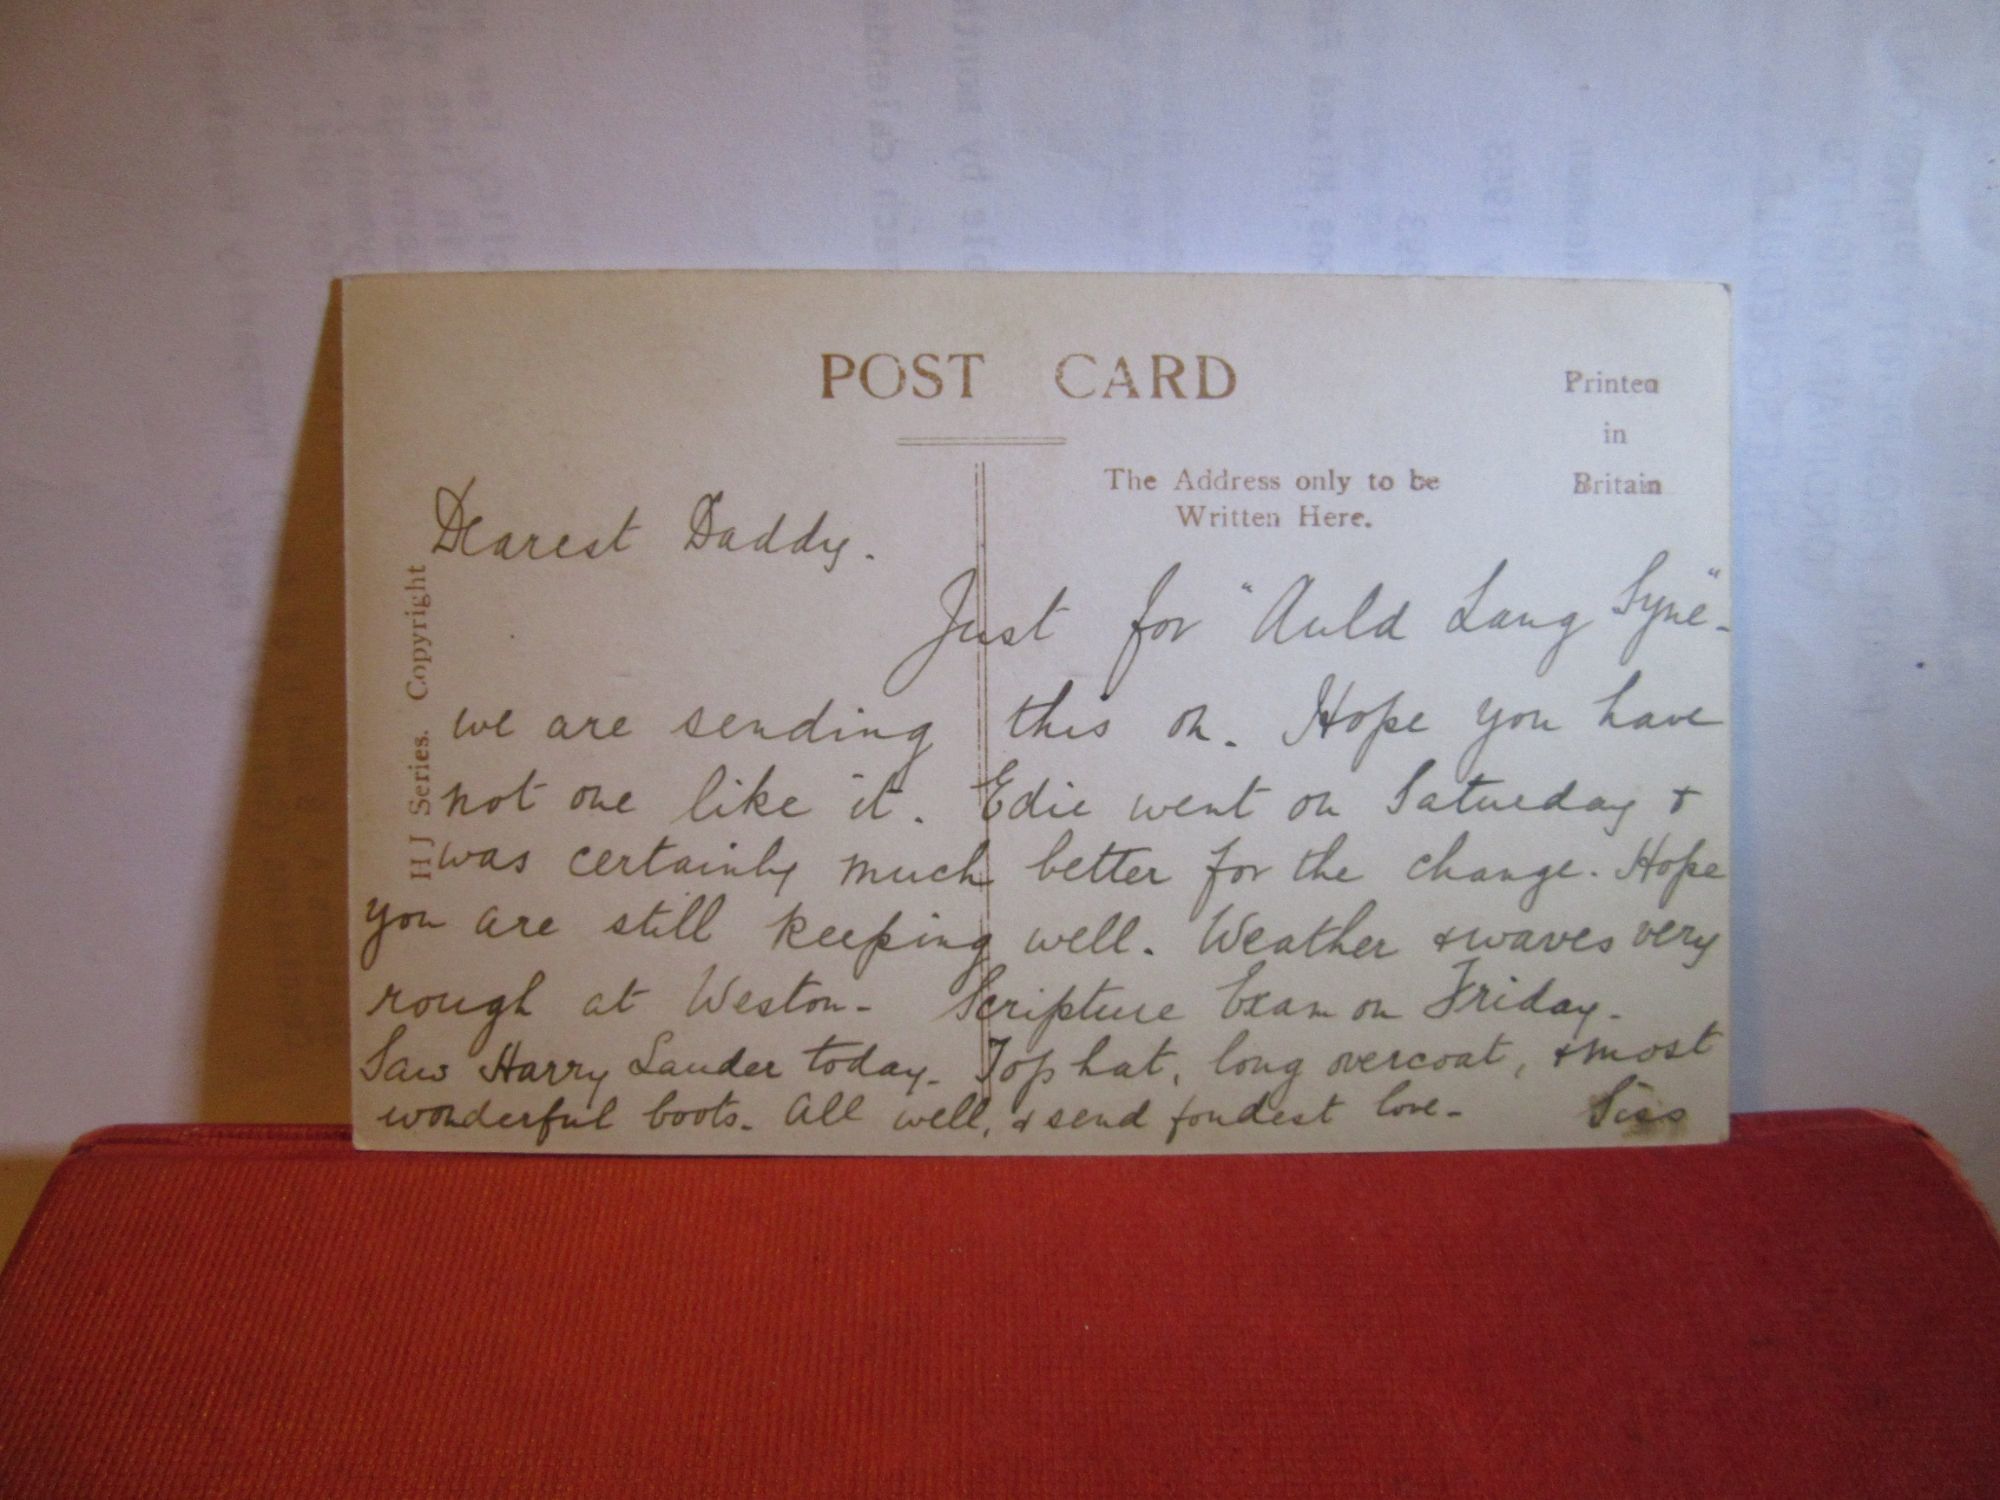 POST CARD
Printed
in
Britain
The Address only to be
Written Here.
H J Series. Copyright
Dearest Daddy.
Just for "Auld Lang Syne" -
we are sending this on. Hope you have
not one like it. Edie went on Saturday &
was certainly much better for the change. Hope
you are still keeping well. Weather & waves very
rough at Weston - Scripture Exam on Friday.
Saw Harry Lauder today. Top hat, long overcoat, & most
wonderful boots. All well, & send fondest love -
Siss